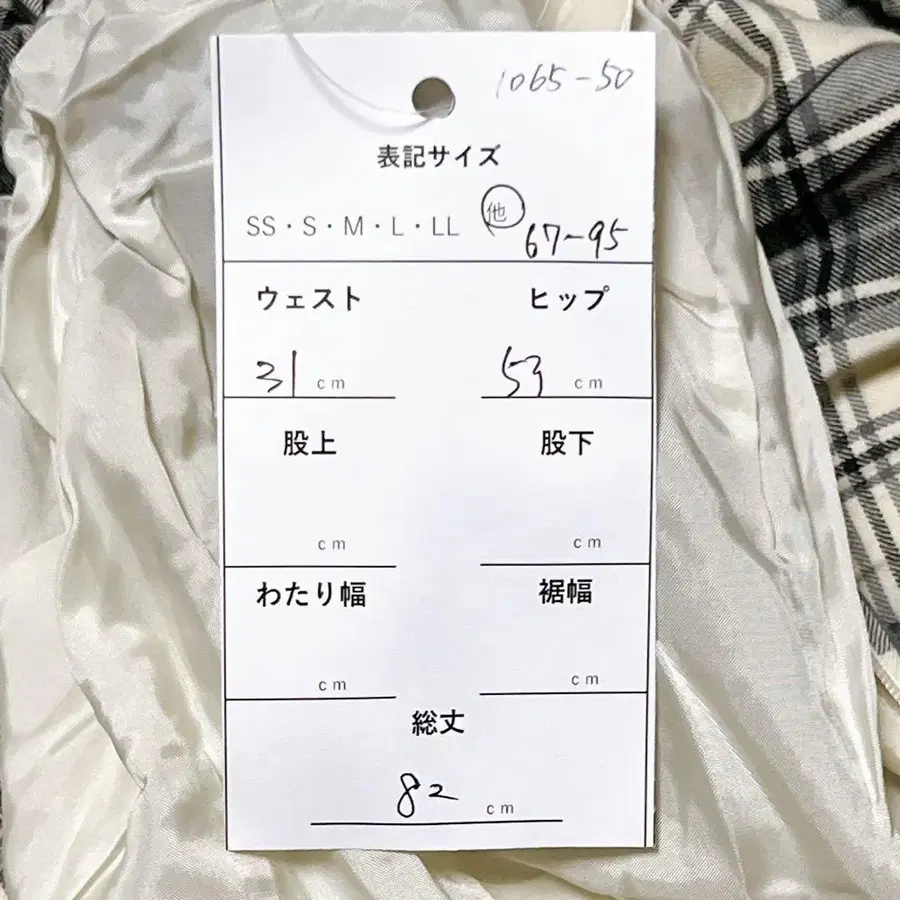 1065-50
表記サイズ
SS・S・M・L・LL 他 67-95
ウェスト ヒップ
31 cm 53 cm
股上 股下
cm cm
わたり幅 裾幅
cm cm
総丈
82 cm